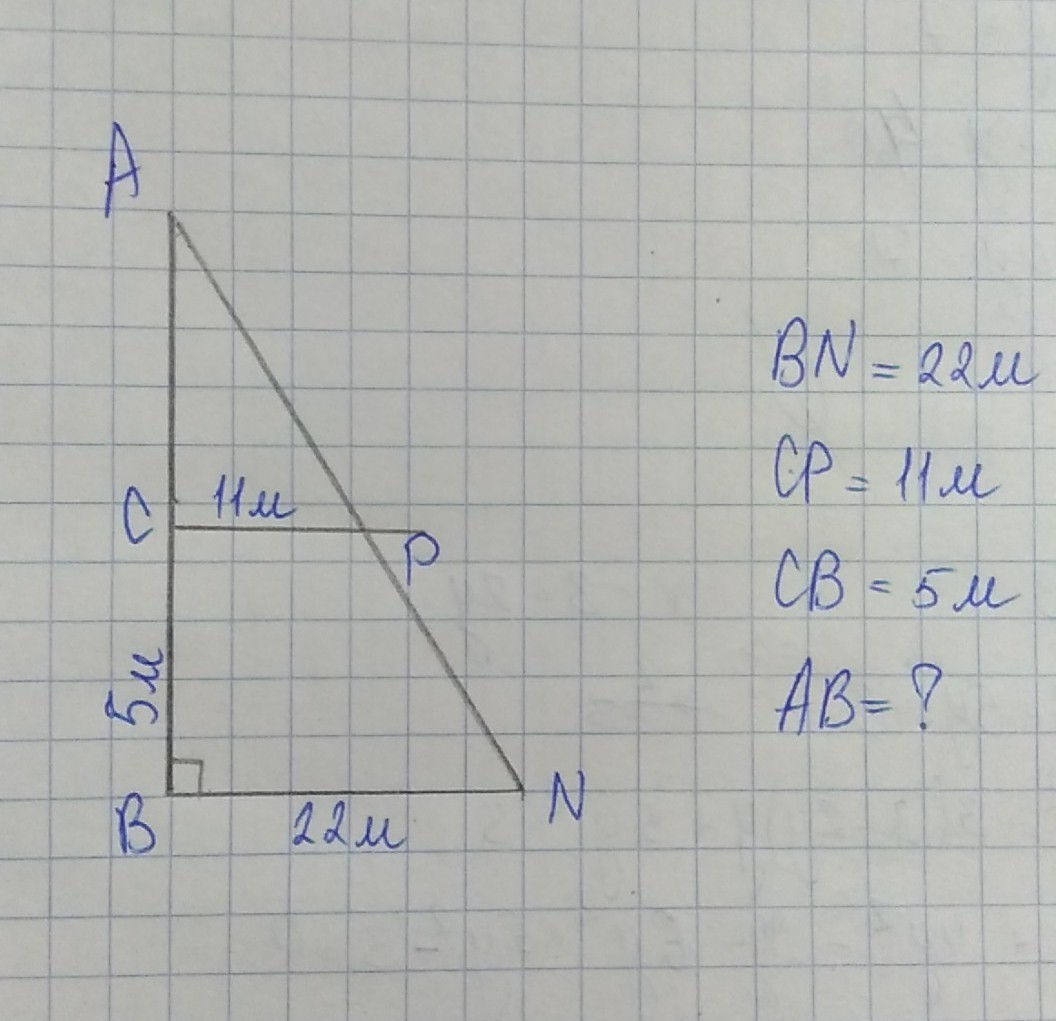 A
C
11м
P
5м
B
22м
N
BN = 22м
CP = 11м
CB = 5м
AB = ?